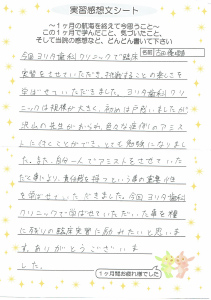 実習感想文シート
～1ヶ月の航海を終えて今思うこと～
この1ヶ月で学んだこと、気づいたこと、
そして当院の感想など、どんどん書いて下さい
名前
今回ヨリタ歯科クリニックで臨床
実習をさせていただき、挑戦することの楽しさを
学ばせていただきました。ヨリタ歯科クリニ
ックは規模が大きく、初めは戸惑いましたが
沢山の先生がおられ、色々な症例のアシス
トに付くことができ、とても勉強になりまし
た。また、自分一人でアシストをさせていた
だく事により、責任感を持つという事の重要性
を学ばせていただきました。今回ヨリタ歯科
クリニックで学ばせていただいた事を糧
に残りの臨床実習に励みたいと思いま
す。ありがとうございま
した。
1ヶ月間お疲れ様でした